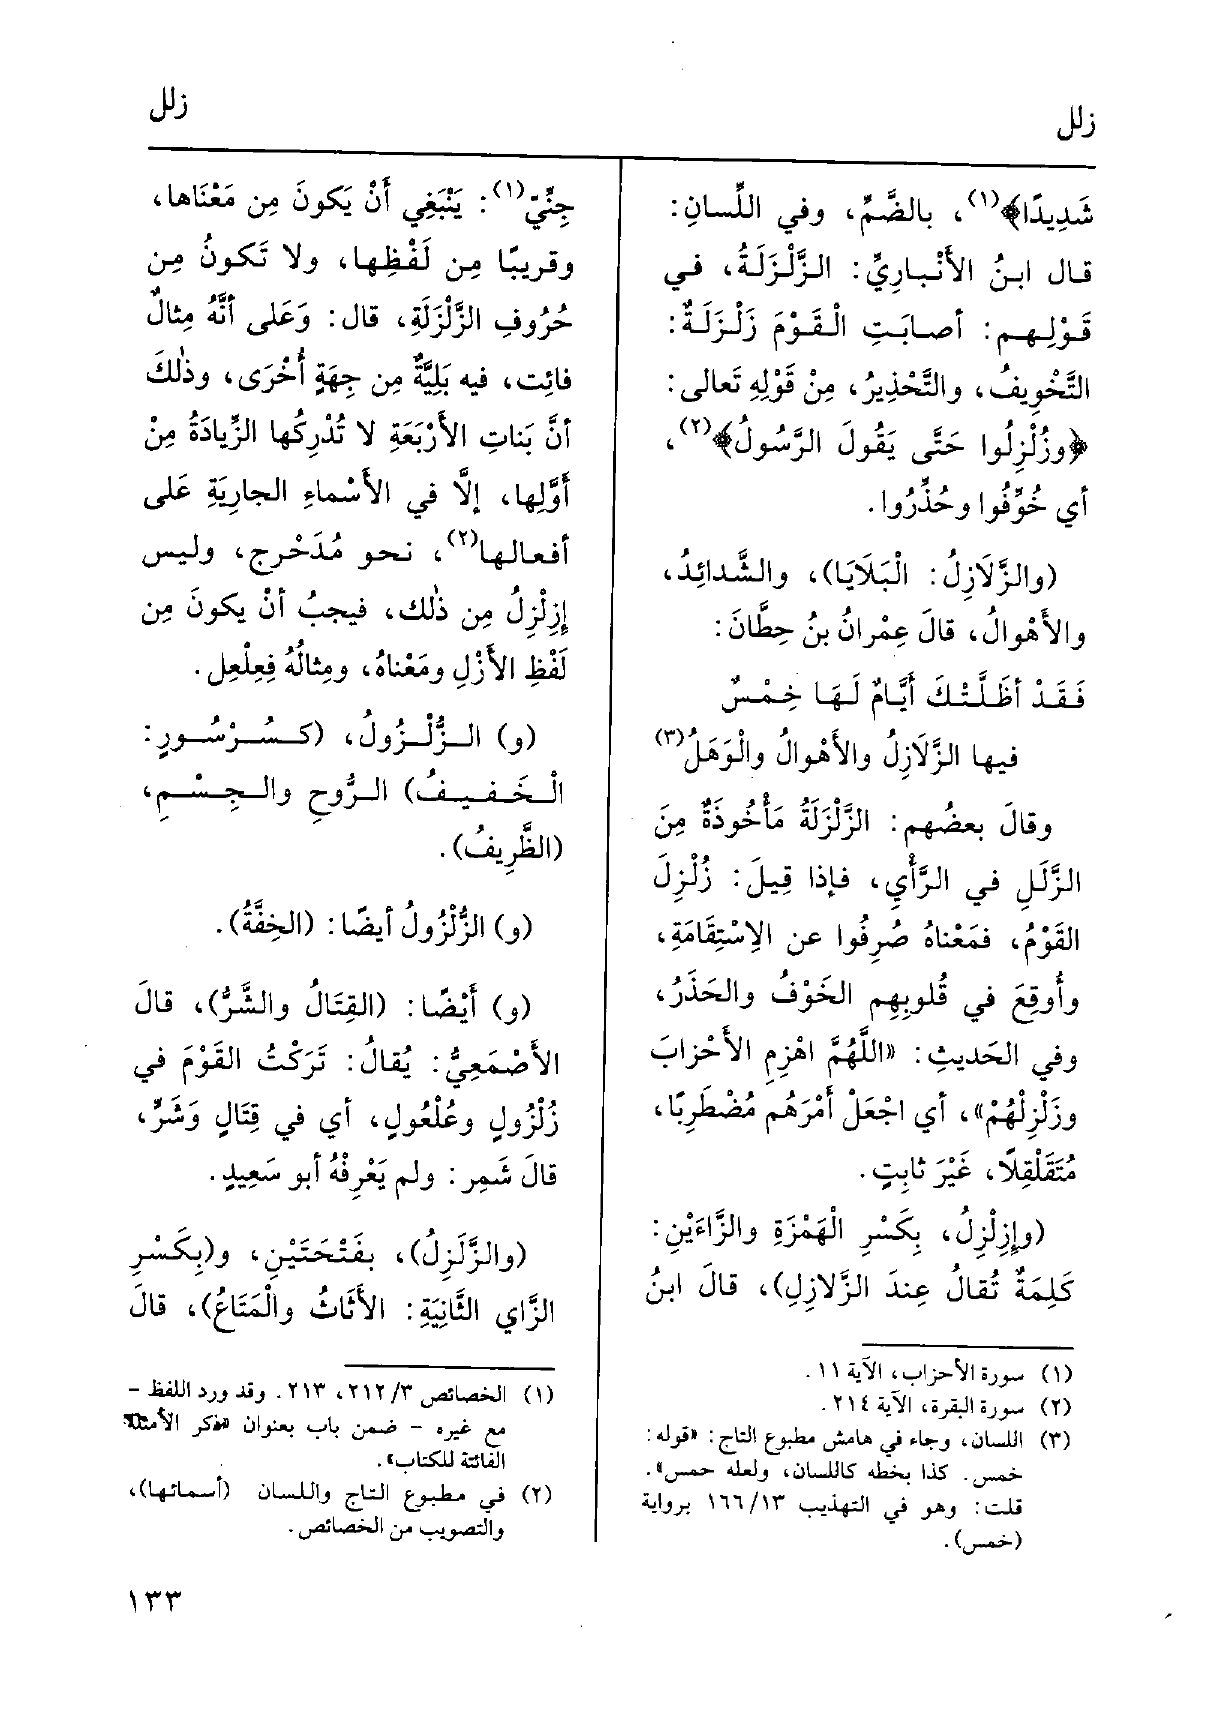 زلل
زلل
شَدِيدًا﴾(١)، بالضَّمِّ، وفي اللِّسانِ:
قال ابنُ الأَنْبارِيِّ: الزَّلْزَلَةُ، في
قَوْلِهِم: أصابَتِ الْقَوْمَ زَلْزَلَةٌ:
التَّخْوِيفُ، والتَّحْذِيرُ، مِنْ قَوْلِهِ تَعالى:
﴿وزُلْزِلُوا حَتَّى يَقُولَ الرَّسُولُ﴾(٢)،
أي خُوِّفُوا وحُذِّرُوا.
(والزَّلَازِلُ: الْبَلَايَا)، والشَّدائِدُ،
والأَهْوالُ، قالَ عِمْرانُ بنُ حِطَّانَ:
فَقَدْ أظَلَّتْكَ أَيَّامٌ لَهَا خِمْسٌ
فيها الزَّلَازِلُ والأَهْوالُ والْوَهَلُ(٣)
وقالَ بعضُهم: الزَّلْزَلَةُ مَأْخُوذَةٌ مِنَ
الزَّلَلِ في الرَّأْيِ، فإذا قِيلَ: زُلْزِلَ
القَوْمُ، فمَعْناهُ صُرِفُوا عن الاِسْتِقَامَةِ،
وأُوقِعَ في قُلوبِهِم الخَوْفُ والحَذَرُ،
وفي الحَديثِ: «اللَّهُمَّ اهْزِمِ الأَحْزابَ
وزَلْزِلْهُمْ»، أي اجْعَلْ أَمْرَهُم مُضْطَرِبًا،
مُتَقَلْقِلًا، غَيْرَ ثابِتٍ.
(وإِزِلْزِلُ، بِكَسْرِ الْهَمْزَةِ والزَّاءَيْنِ:
كَلِمَةٌ تُقالُ عِندَ الزَّلازِلِ)، قالَ ابنُ
(١) سورة الأحزاب، الآية ١١.
(٢) سورة البقرة، الآية ٢١٤.
(٣) اللسان، وجاء في هامش مطبوع التاج: «قوله:
خمس. كذا بخطه كاللسان، ولعله حمس».
قلت: وهو في التهذيب ١٦٦/١٣ برواية
(خمس).
جِنِّيّ(١): يَنْبَغِي أَنْ يَكونَ مِن مَعْنَاها،
وقريبًا مِن لَفْظِها، ولا تَكونُ مِن
حُرُوفِ الزَّلْزَلَةِ، قال: وَعَلى أنَّهُ مِثالٌ
فائِت، فيه بَلِيَّةٌ مِن جِهَةٍ أُخْرَى، وذٰلكَ
أنَّ بَناتِ الأَرْبَعَةِ لا تُدْرِكُها الزِّيادَةُ مِنْ
أَوَّلِها، إلَّا في الأَسْماءِ الجارِيَةِ عَلى
أفعالها(٢)، نحو مُدَحْرِج، وليس
إِزِلْزِلُ مِن ذٰلك، فيجبُ أنْ يكونَ مِن
لَفْظِ الأَزْلِ ومَعْناهُ، ومِثالُهُ فِعِلْعِل.
(و) الزُّلْزُولُ، (كسُرْسُورٍ:
الْخَفِيفُ) الرُّوحِ والجِسْمِ،
(الظَّرِيفُ).
(و) الزُّلْزُولُ أيضًا: (الخِفَّةُ).
(و) أَيْضًا: (القِتَالُ والشَّرُّ)، قالَ
الأَصْمَعِيُّ: يُقالُ: تَرَكْتُ القَوْمَ في
زُلْزُولٍ وعُلْعُولٍ، أي في قِتَالٍ وَشَرٍّ،
قالَ شَمِر: ولم يَعْرِفْهُ أبو سَعِيدٍ.
(والزَّلَزِلُ)، بفَتْحَتَيْنِ، و(بِكَسْرِ
الزَّاي الثَّانِيَةِ: الأَثَاثُ والْمَتَاعُ)، قالَ
(١) الخصائص ٢١٢/٣، ٢١٣. وقد ورد اللفظ -
مع غيره - ضمن باب بعنوان «ذكر الأمثلة
الفائتة للكتاب».
(٢) في مطبوع التاج واللسان (أسمائها)،
والتصويب من الخصائص.
١٣٣